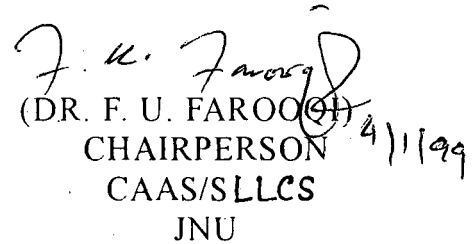 F. U. Farooqi
(DR. F. U. FAROOQI)
CHAIRPERSON 4/1/99
CAAS/SLLCS
JNU